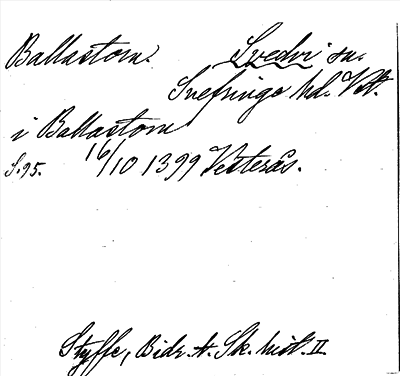 Ballastom. Svedvi sn.
Snefringe hd. Vstl.
i Ballastom
S. 95. 16/10 1399 Vesterås.
Styffe, Bidr. t. Sk. hist. II